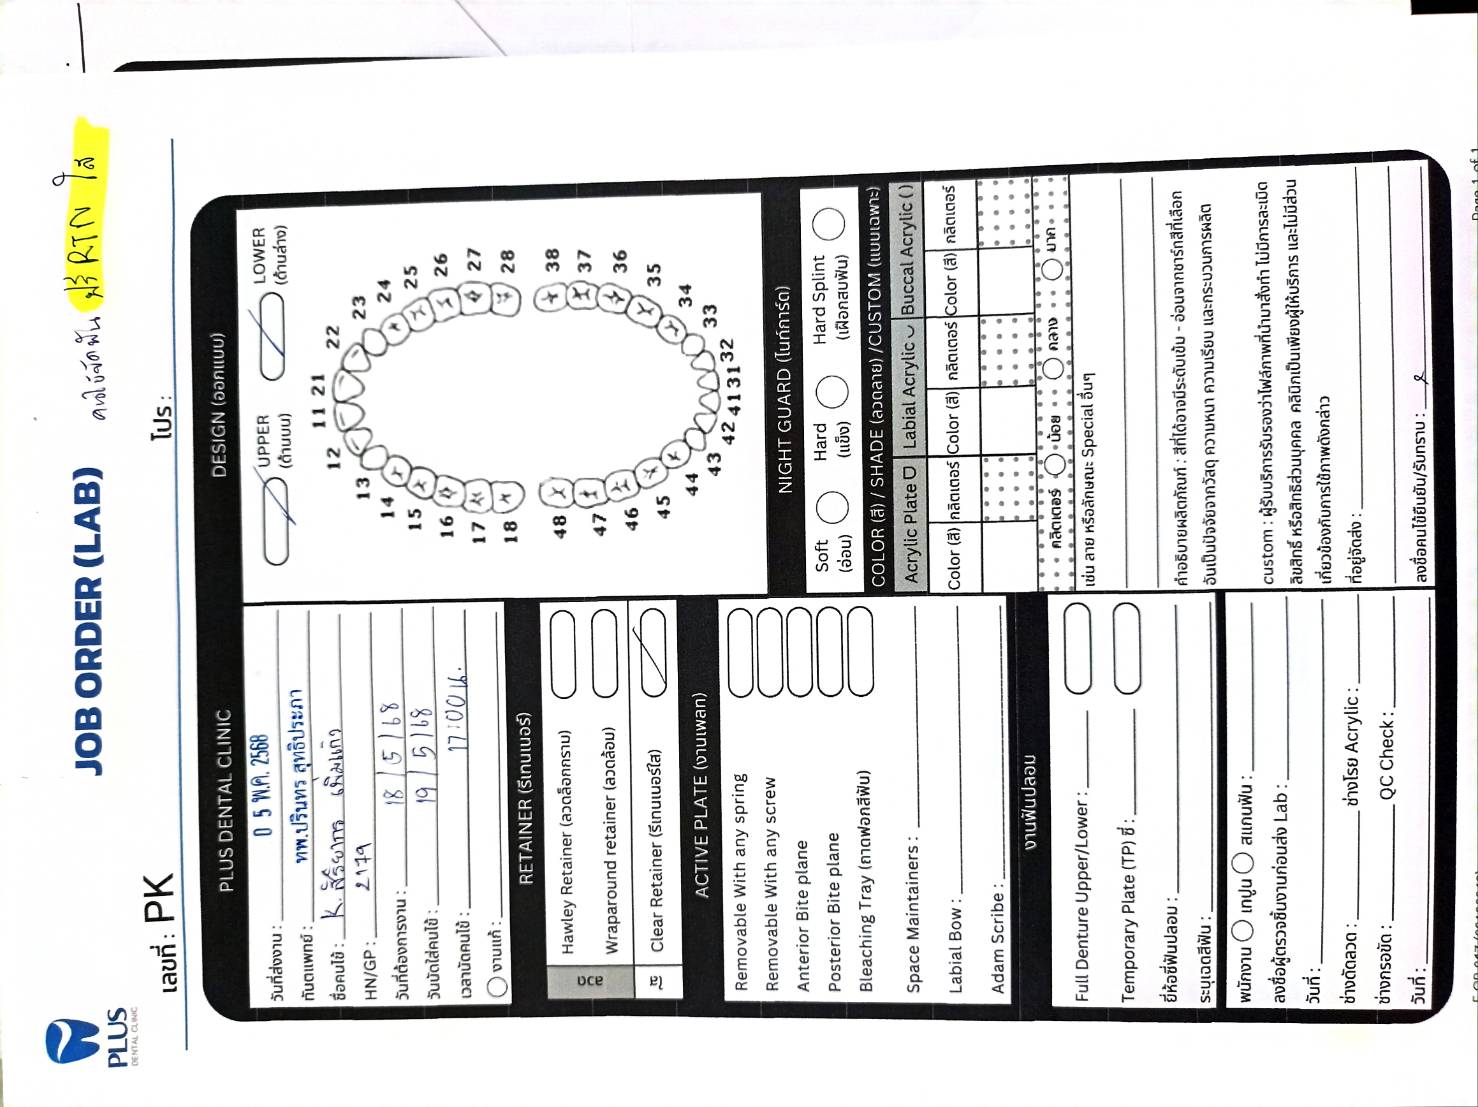 PLUS
DENTAL CLINIC
JOB ORDER (LAB)
คนไข้จัดฟัน ฟรี RTN ใส
เลขที่ : PK
โปร :
PLUS DENTAL CLINIC
วันที่ส่งงาน : 0 5 พ.ค. 2568
ทันตแพทย์ : ทพ.ปรินทร สุทธิประภา
ชื่อคนไข้ : K.
HN/GP : 2179
วันที่ต้องการงาน : 18/5/68
วันนัดใส่คนไข้ : 19/5/68
เวลานัดคนไข้ : 17:00 น.
งานแก้ :
RETAINER (รีเทนเนอร์)
ลวด
Hawley Retainer (ลวดล็อกกราม)
Wraparound retainer (ลวดล้อม)
ใส
Clear Retainer (รีเทนเนอร์ใส)
ACTIVE PLATE (งานเพลท)
Removable With any spring
Removable With any screw
Anterior Bite plane
Posterior Bite plane
Bleaching Tray (ถาดฟอกสีฟัน)
Space Maintainers :
Labial Bow :
Adam Scribe :
งานฟันปลอม
Full Denture Upper/Lower :
Temporary Plate (TP) ซี่ :
ยี่ห้อซี่ฟันปลอม :
ระบุเฉดสีฟัน :
พนักงาน เทปูน สแกนฟัน :
ลงชื่อผู้ตรวจชิ้นงานก่อนส่ง Lab :
วันที่ :
ช่างดัดลวด : ช่างโรย Acrylic :
ช่างกรอขัด : QC Check :
วันที่ :
DESIGN (ออกแบบ)
UPPER (ด้านบน) LOWER (ด้านล่าง)
11 21
12 22
13 23
14 24
15 25
16 26
17 27
18 28
48 38
47 37
46 36
45 35
44 34
43 33
42 41 31 32
NIGHT GUARD (ไนท์การ์ด)
Soft (อ่อน) Hard (แข็ง) Hard Splint (เฝือกสบฟัน)
COLOR (สี) / SHADE (ลวดลาย) /CUSTOM (แบบเฉพาะ)
Acrylic Plate Labial Acrylic Buccal Acrylic ( )
Color (สี) กลิตเตอร์ Color (สี) กลิตเตอร์ Color (สี) กลิตเตอร์
กลิตเตอร์ น้อย กลาง มาก
เช่น ลาย หรือลักษณะ Special อื่นๆ
คำอธิบายผลิตภัณฑ์ : สีที่ได้อาจมีระดับเข้ม - อ่อนจากชาร์ทสีที่เลือก
อันเป็นปัจจัยจากวัสดุ ความหนา ความเรียบ และกระบวนการผลิต
custom : ผู้รับบริการรับรองว่าไฟล์ภาพที่นำมาสั่งทำ ไม่มีการละเมิด
ลิขสิทธิ์ หรือสิทธิส่วนบุคคล คลินิกเป็นเพียงผู้ให้บริการ และไม่มีส่วน
เกี่ยวข้องกับการใช้ภาพดังกล่าว
ที่อยู่จัดส่ง :
ลงชื่อคนไข้ยืนยัน/รับทราบ :
Page 1 of 1